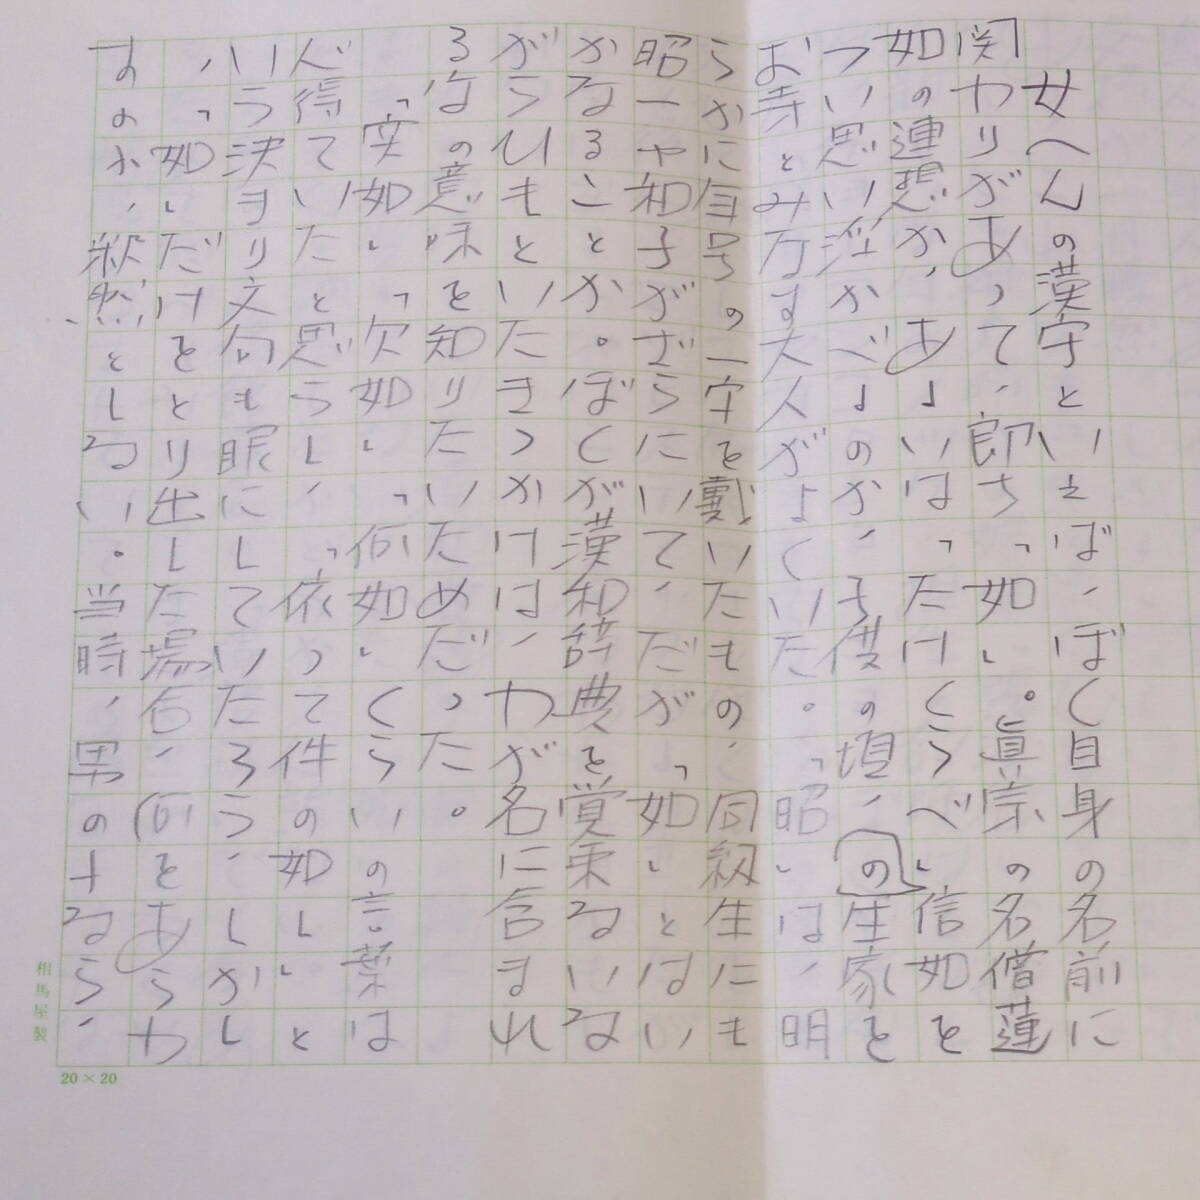 女へんの漢字といえば、ぼく自身の名前に
関わりがあって、即ち「如」。眞宗の名僧蓮
如の連想か、あるいは「たけくらべ」信如を
つい思い浮かべるのか、子供の頃、の生家を
お寺とみなす大人がよくいた。「昭」は、明
らかに年号の一字を戴いたもの、同級生にも
昭一や和子がざらにいて、だが「如」とはい
かなることか。ぼくが漢和辞典を覚束ないな
がらひもといたきっかけは、わが名に含まれ
るの意味を知りたいためだった。
「突如」「欠如」「何如」くらいの言葉は
心得ていたと思うし、「依って件の如し」と
いう決まり文句も眼にしていたろう、しかし
、「如」だけをとり出した場合、何をあらわ
すのか、釈然としない。当時、男の子なら、
相馬屋製
20×20